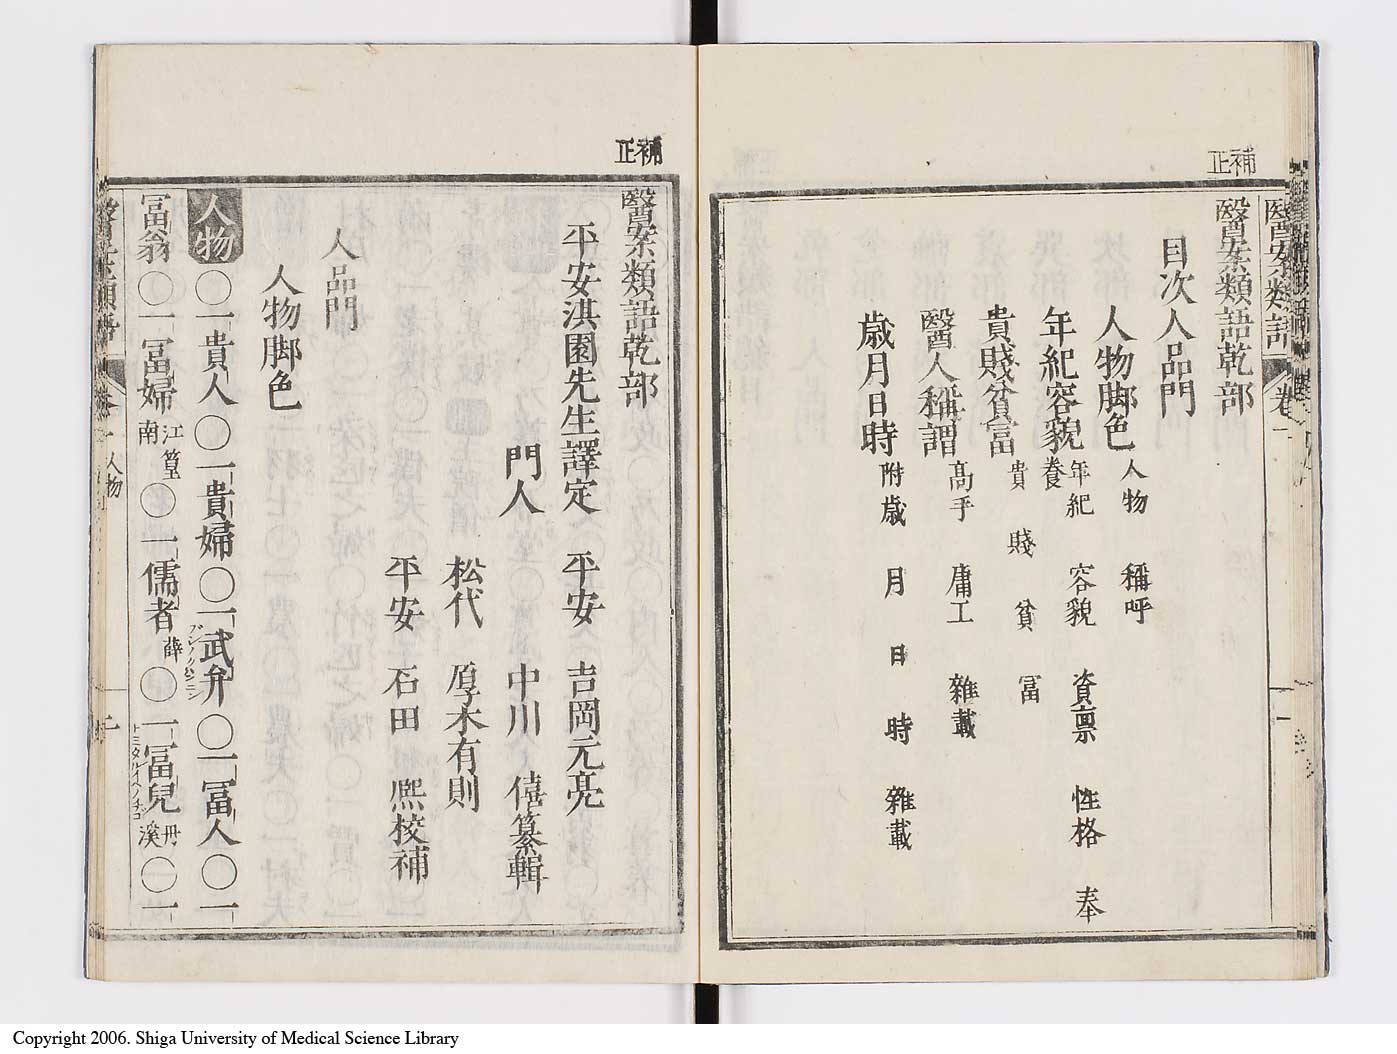 補正
醫案類語 卷一
醫案類語乾部
目次人品門
人物脚色 人物 稱呼
年紀容貌 年紀 容貌 資稟 性格 奉養
貴賤貧富 貴 賤 貧 冨
醫人稱謂 高手 庸工 雜載
歳月日時 附歳 月 日 時 雜載
補正
醫案類語乾部
平安淇園先生譯定 平安 吉岡元亮
門人 中川 僖纂輯
松代 厚木有則
平安 石田 熈校補
人品門
人物脚色
人物 〇一貴人〇一貴婦〇一武弁〇一冨人〇一
冨翁〇一冨婦 江篁南 〇一儒者 薛 〇一冨兒 丹溪 〇一
人物
Copyright 2006. Shiga University of Medical Science Library